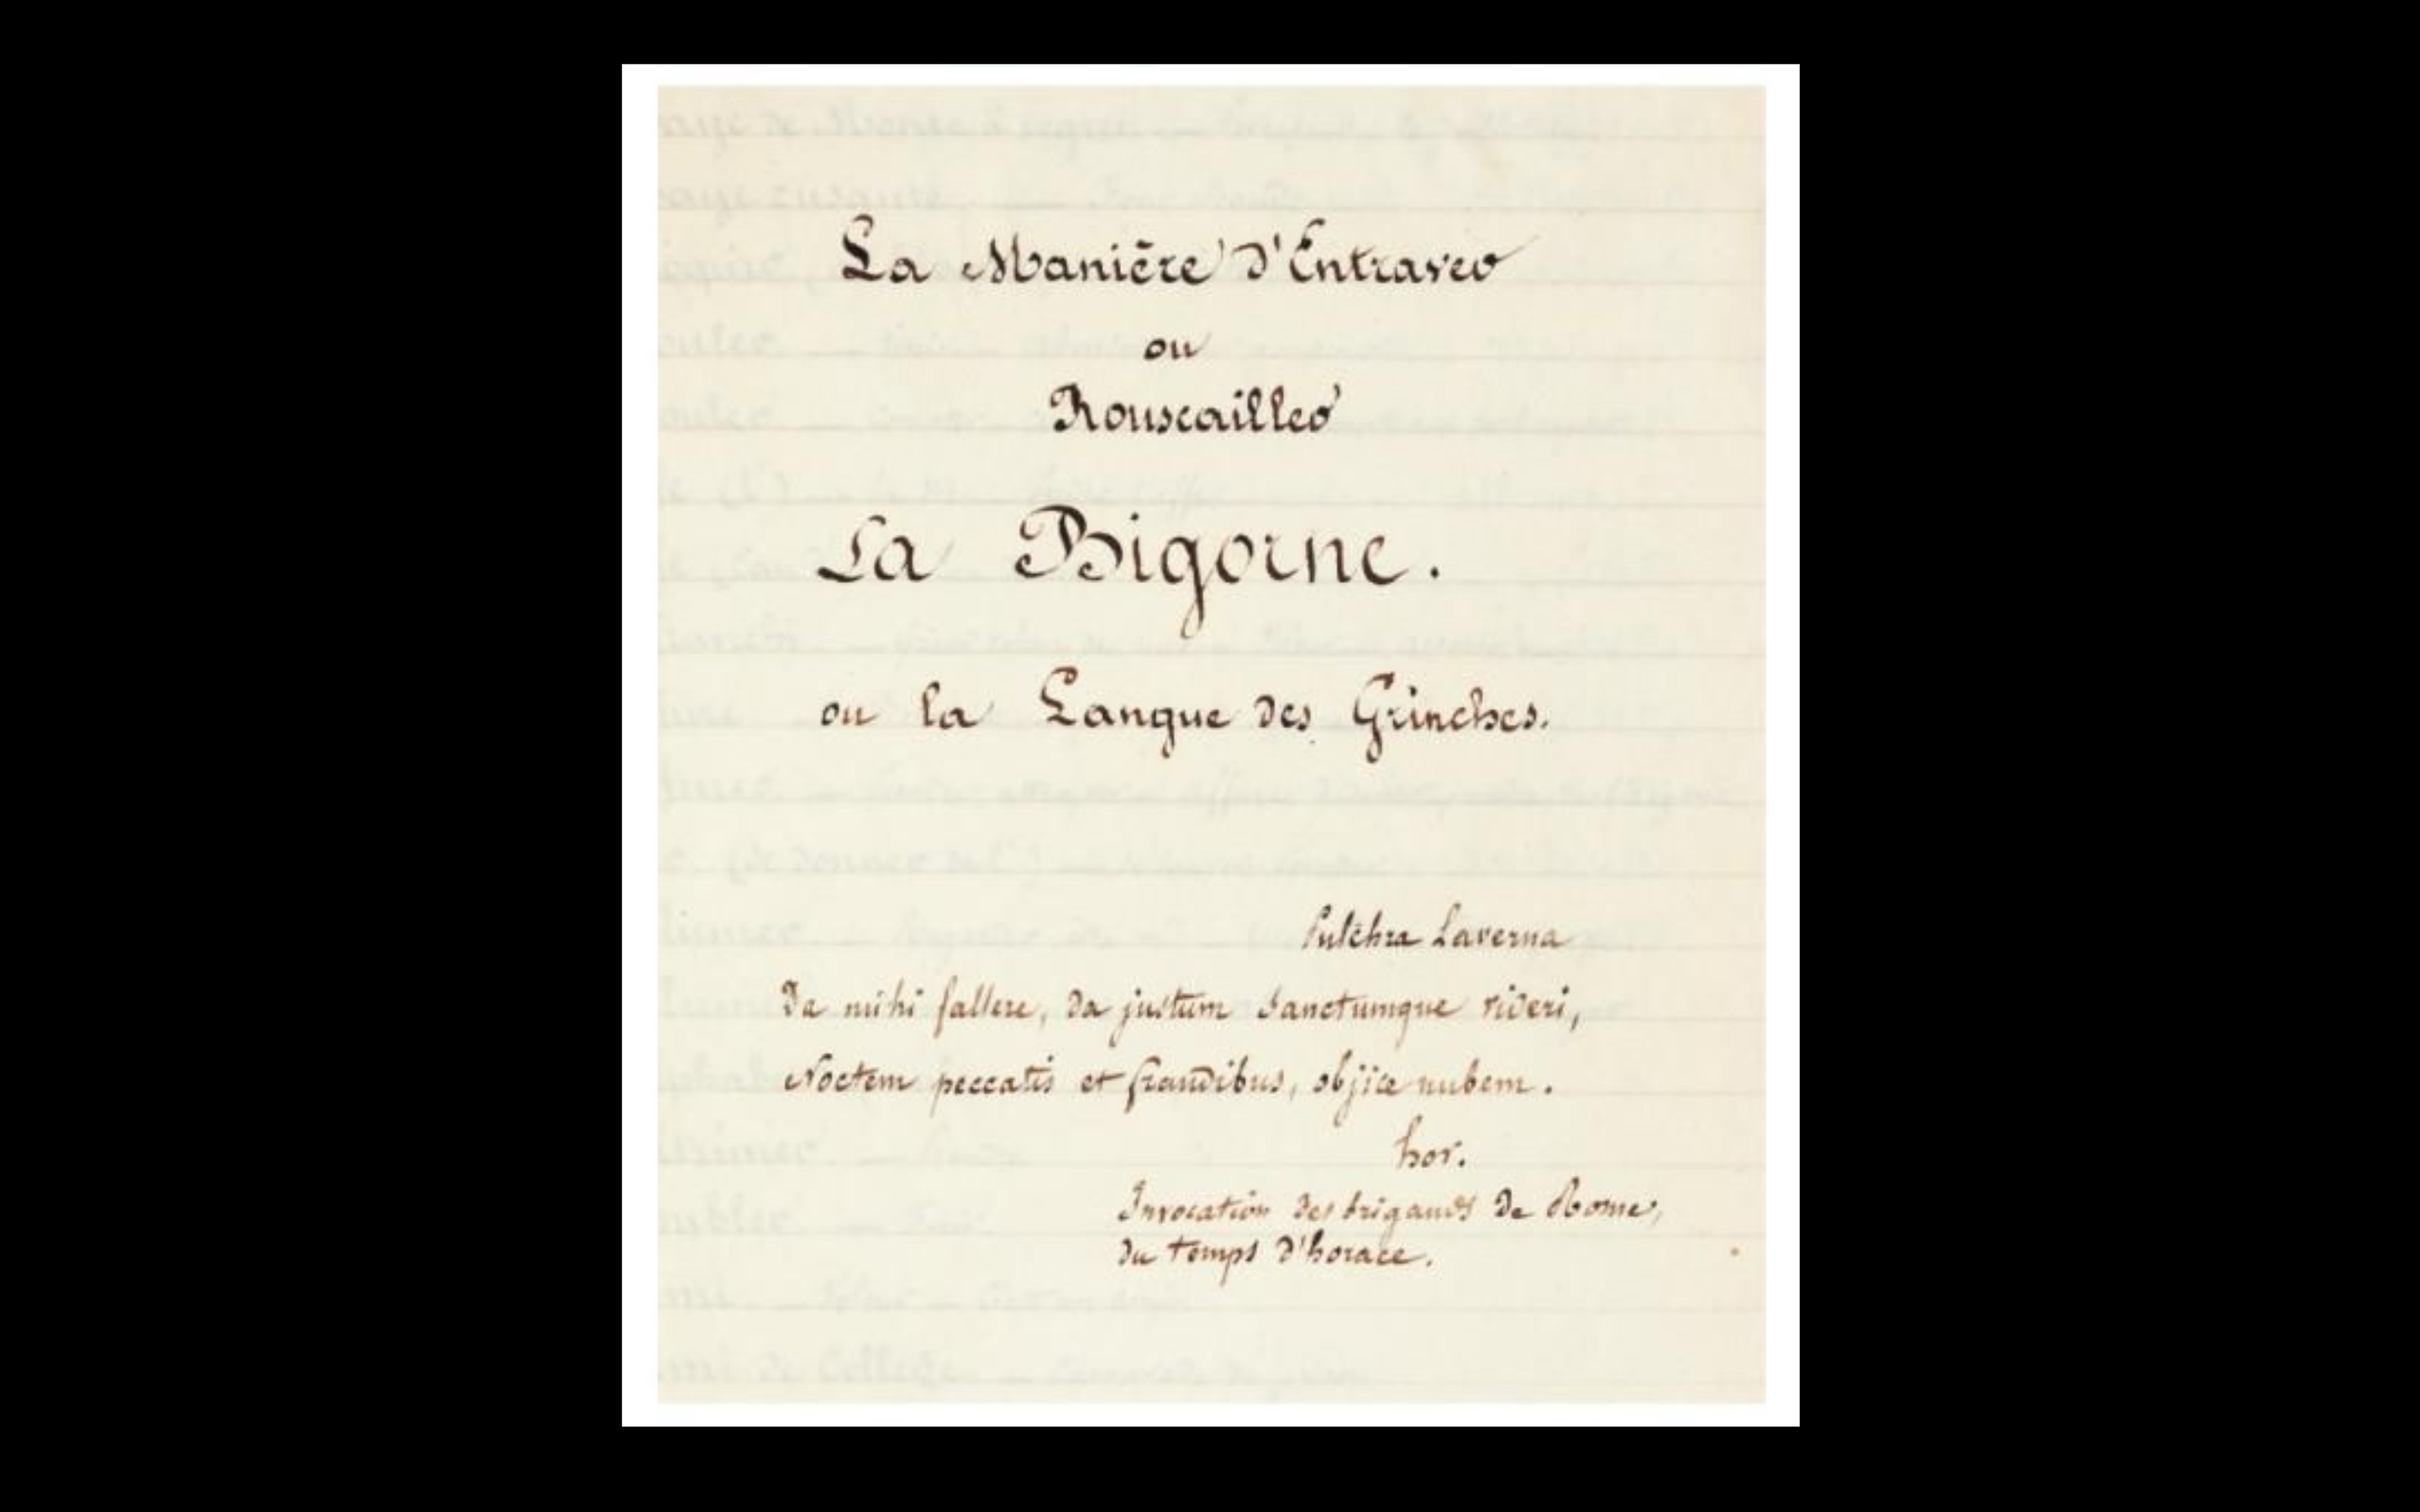 La Manière d'Entraver
ou
Rouscailler
La Bigorne.
ou la Langue des Grinches.
Pulchra Laverna
Da mihi fallere, da justum sanctumque videri,
Noctem peccatis et fraudibus, objice nubem.
hor.
Invocation des brigands de Rome,
du temps d'horace.